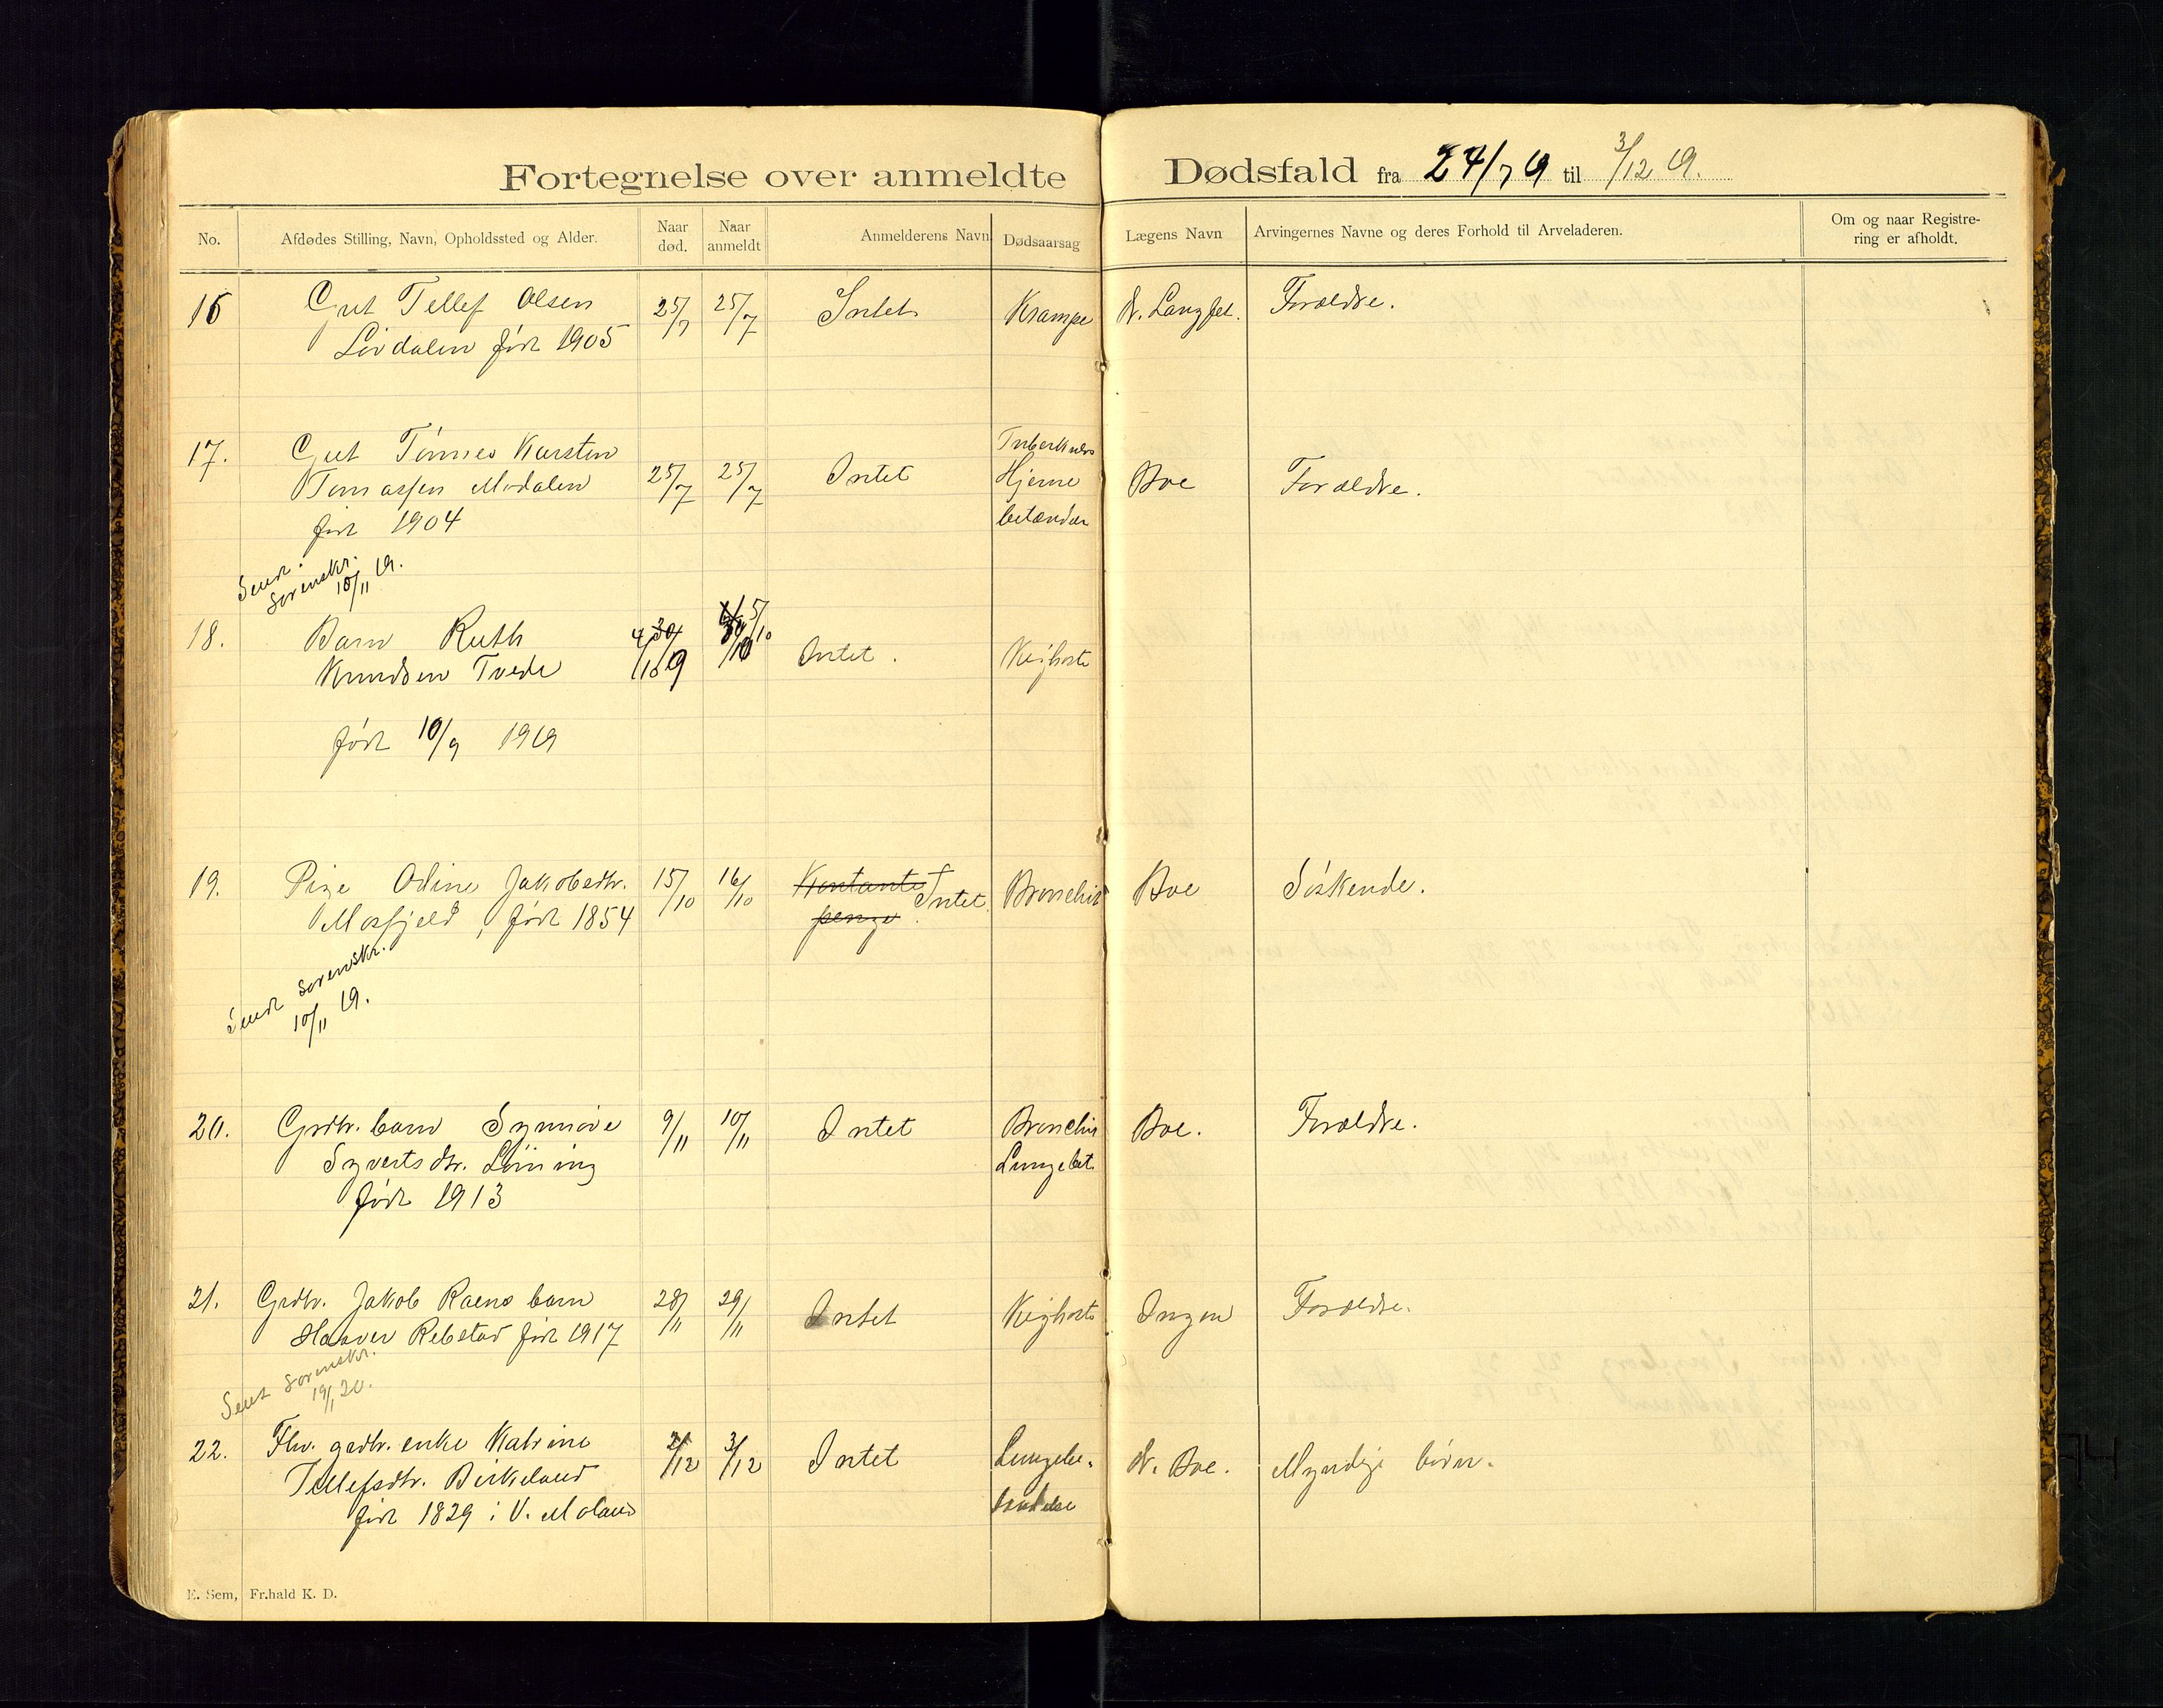 Fortegnelse over anmeldte Dødsfald fra 24/7 19 til 3/12 19.
No. Afdødes Stilling, Navn, Opholdssted og Alder. Naar død. Naar anmeldt Anmelderens Navn Dødsaarsag Lægens Navn Arvingernes Navne og deres Forhold til Arveladeren. Om og naar Registre-
ring er afholdt.
16 Gut Tellef Olsen 25/7 25/7 Intet Krampe Forældre.
Lövdalen föd 1905
17. Gut Tönnes Karsten Tuberkuløs
Tomassen Modalen 25/7 25/7 Intet Hjerne Boe Forældre.
föd 1904
Sendt
Sorenskr.
10/11 19.
18. Barn Ruth 4/10 5/10 Intet. Kighoste
Knudsen Tvede
född 10/9 1919
19. Pige Odine Jakobsdtr. 15/10 16/10 Kontante Intet Bronchit Boe Söskende.
Mosfjeld, född 1854 penge
Sendt Sorenskr.
10/11 19.
20. Grdbr. barn Synnöve 9/11 10/11 Intet Bronchit Boe. Forældre.
Syvertsdtr. Löining Lungebet.
född 1913
21. Grdbr. Jakob Raens barn 28/11 29/11 Intet Kighoste Ingen Forældre.
Haaver Rebstad föd 1917
Sendt Sorenskr.
19/1 20.
22. Fhv. grdbr. enke Katrine 2/12 3/12 Intet Lungebe- dr. Boe. Myndige börn.
Tellefsdtr. Birkeland tændelse
föd 1829 i V. Moland
E. Sem, Fr.hald K. D.